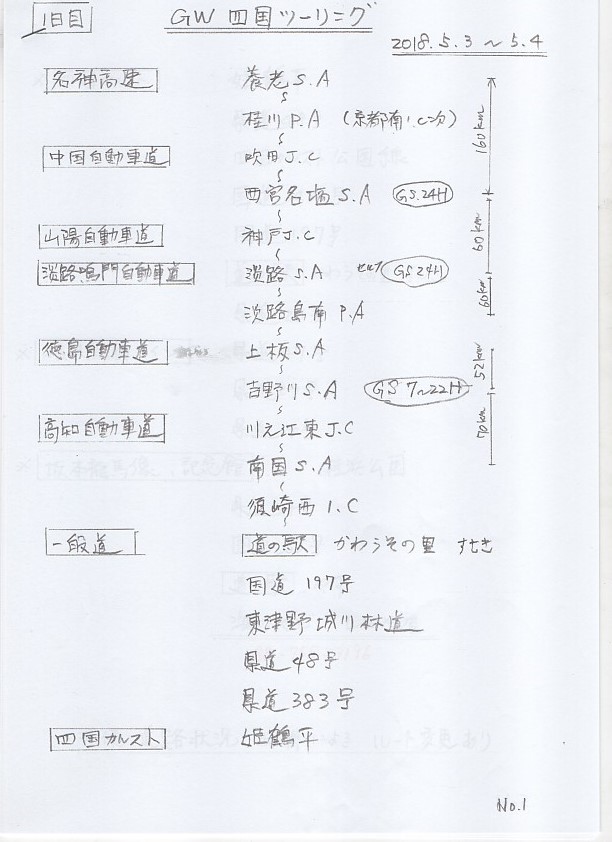 1日目 GW 四国ツーリング
2018.5.3 ～5.4
名神高速 養老S.A
桂川P.A (京都南I.C次)
160km
中国自動車道 吹田J.C
西宮名塩S.A GS.24H
山陽自動車道 神戸J.C
60km
淡路鳴門自動車道 淡路S.A セルフ GS24H
60km
淡路島南P.A
徳島自動車道 上板S.A
52km
吉野川S.A GS 7～22H
高知自動車道 川之江東J.C
70km
南国S.A
須崎西I.C
一般道 道の駅 かわうその里 すさき
国道197号
東津野城川林道
県道48号
県道383号
四国カルスト 姫鶴平
No.1